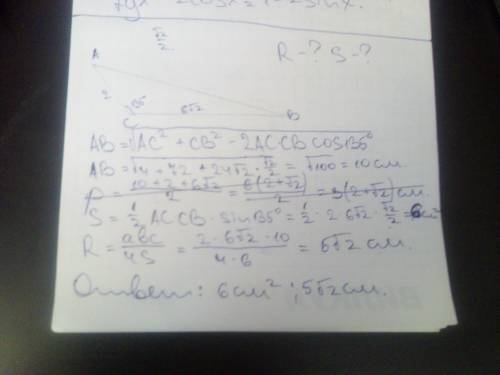 tgx - 2cosx = 1 - 2sinx.
√2/2
R-? S-?
A
2
135°
6√2
C
B
AB = √AC² + CB² - 2AC CB cos135°
AB = √4 + 72 + 24√2 · √2/2 = √100 = 10 см.
P = 10 + 2 + 6√2/2 = 6(2+√2)/2 = 3(2+√2) см.
S = 1/2 AC CB · sin135° = 1/2 · 2 6√2 · √2/2 = 6см²
R = abc/4S = 2 · 6√2 · 10/4 · 6 = 5√2 см.
Ответ: 6 см² ; 5√2 см.